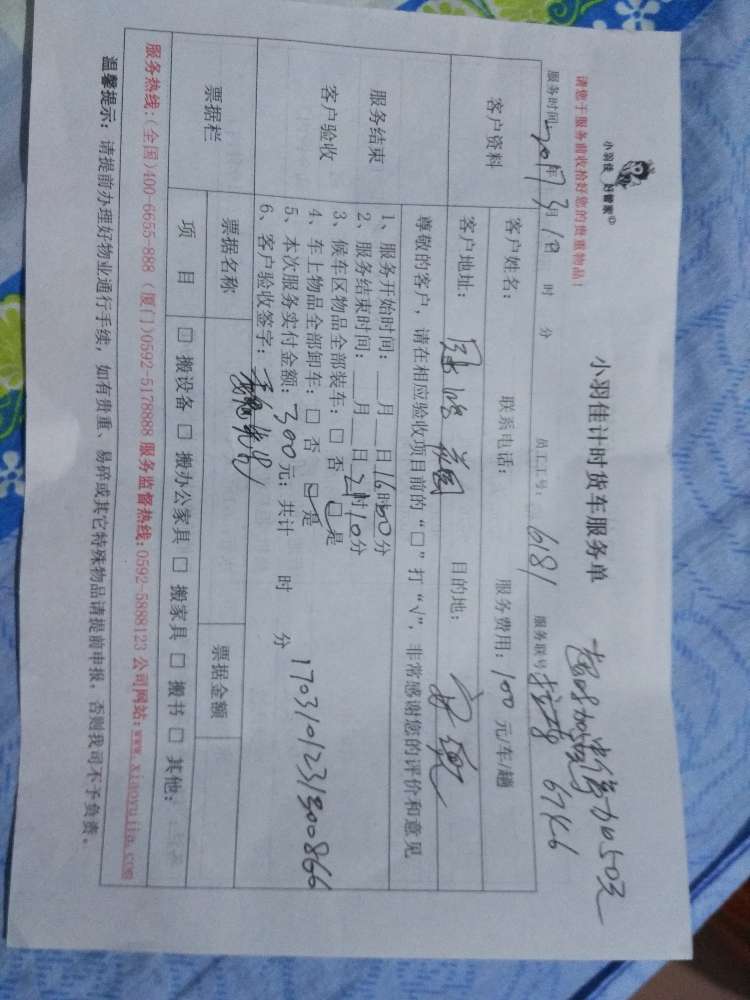 小羽佳 好管家
小羽佳计时货车服务单
请您于服务前收拾好您的贵重物品!
超时加
加50元
服务时间: 2017年3月1日 时 分 员工工号: 6181 服务联号: 6746
客户资料 客户姓名: 联系电话: 服务费用: 100元/车/趟
客户地址: 目的地:
服务结束 客户验收
尊敬的客户,请在相应验收项目前的“□”打“√”,非常感谢您的评价和意见
1、服务开始时间: __月__日16时50分
2、服务结束时间: __月__日21时10分
3、候车区物品全部装车: □ 否 □ 是
4、车上物品全部卸车: □ 否 □ 是
5、本次服务实付金额: 300元; 共计 时 分
6、客户验收签字:
1703101231300866
票据栏 票据名称 票据金额
项 目 □ 搬设备 □ 搬办公家具 □ 搬家具 □ 搬书 □ 其他:
服务热线:(全国)400-6655-888 (厦门)0592-5178888 服务监督热线:0592-5888123 公司网站:www.xiaoyujia.com
温馨提示: 请提前办理好物业通行手续,如有贵重、易碎或其它特殊物品请提前申报,否则我司不予负责。